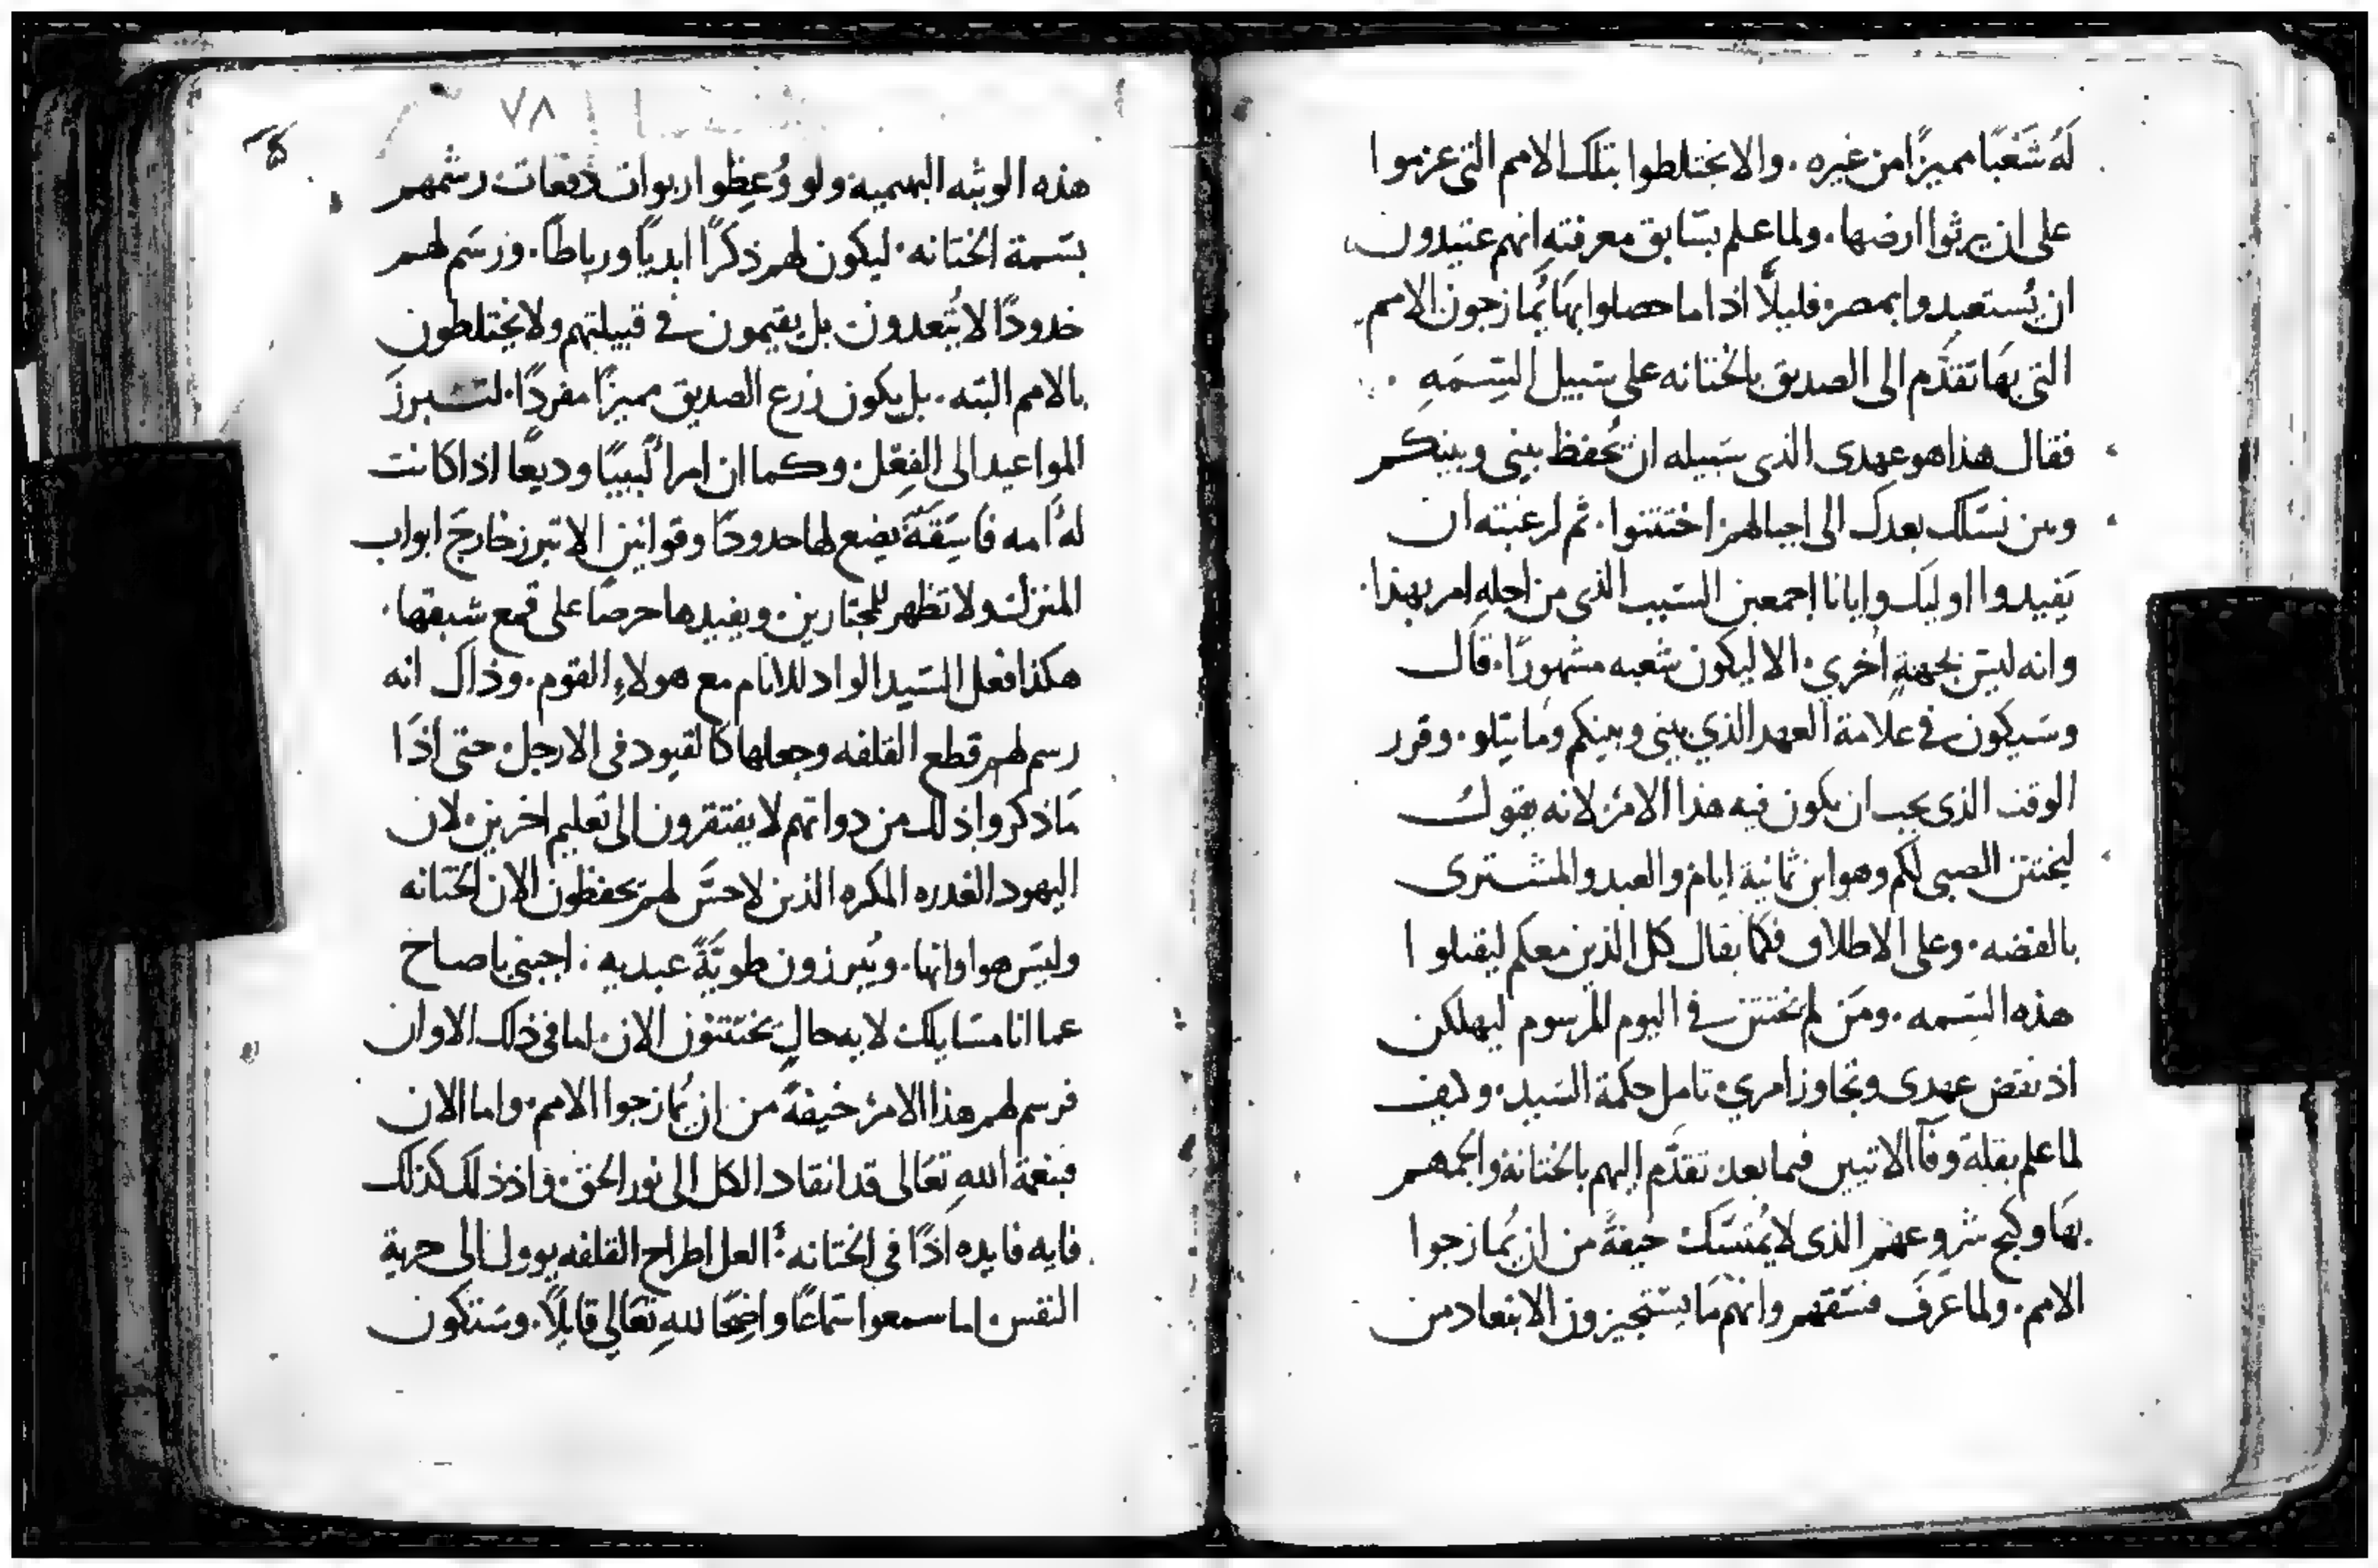 لَهُ شَعْبًا مميزًا من غيره . والا يختلطوا بتلك الامم التي عزموا
على ان يرثوا ارضها . ولما علم بسَابق معرفته انهم عتيدون
ان يُستعبدوا بمصر قليلًا اذا ما حصلوا بها يُمازجون الامم
التي بهَا تقدَّم الى الصديق بالختانه على سَبيل السِّمَهِ .
فقال هذا هو عهدى الذى سَبيله ان يُحفظ بينى وبينكم
وبين نسَلك بعدك الى اجيالهم اختتنوا . ثم لرغبته ان
يَفيدوا اوليك وايانا اجمعين السَبب الذى من اجله امر بهذا .
وانه ليسَ بجهةٍ اخري . الا ليكون شعبه مشهورًا . قال
وسَيكون في علامة العهد الذي بيني وبينكم ومَا يتلو . وقرر
الوقت الذى يجب ان يكون فيه هذا الامر لانه يقول
ليختتن الصبى لكم وهو ابن ثمانية ايام والعبد والمشترى
بالفضه . وعلى الاطلاق فكما يقال كل الذين معكم ليقبلوا
هذه السِّمه . ومَن لم يختتن في اليوم المرسوم ليهلكن
اذ نقض عهدى وتجاوز امري . تامل حكمة السَيد . وكيف
لما علم بقلة وفآ الاتيين فيما بعد تقدَّم اليهم بالختانة والجمهم
بهَا وكبح شروعهم الذى لا يُمتسَك خيفةً من ان يُمازجوا
الامم . ولما عَرَفَ فسَقهم وانهم مَا يستجيزون الابتعاد من
٧٨
هذه الوثبه البهيميه ولو وُعِظوا ربوات دفعات رسَمهم
بسَمة الختانه . ليكون لهم ذكرًا ابديًا ورباطًا . ورسَم لهم
حدودًا لا تُبعدون بل يقيمون في قبيلتهم ولا يختلطون
بالامم البته . بل يكون زرع الصديق مميزًا مفردًا . لتبرزَ
المواعيد الى الفِعْل . وكما ان امرا لبيبًا وديعا اذا كانت
لهُ امه فاسِقَةً يضع لها حدودًا وقوانين الا تبرز خارجَ ابواب
المنزل ولا تظهر للمجتازين . ويقيدها حرصًا على قمع شبقها .
هكذا فعل السَيد الواد للانام مع هولاءِ القوم . وذاك انه
رسم لهم قطع القلفه وجعلها كالقيود في الارجل . حتى اذا
مَا ذكروا ذلك من ذواتهم لا يفتقرون الى تعليم اخرين . لان
اليهود الغدره المكره الذين لا حسَّ لهم يحفظون الان الختانه
وليسَ هو اوانها . ويُبرزون طويَّةً عبديه : اجبني يا صاح
عما انا مسَايلك لايه حالٍ يختتنون الان . اما في ذلك الاوان
فرسم لهم هذا الامر خيفةً من ان يُمازجوا الامم . واما الان
فبنعمة اللهِ تعَالى قد انقاد الكل الى نور الحق . واذ ذلك كذلك
فايه فايده اذًا في الختانه . العل اطراح القلفه يوول الى حرية
النفس . اما سمعوا سَماعًا واضِحًا للهِ تعَالي قايلًا . وسَتكون